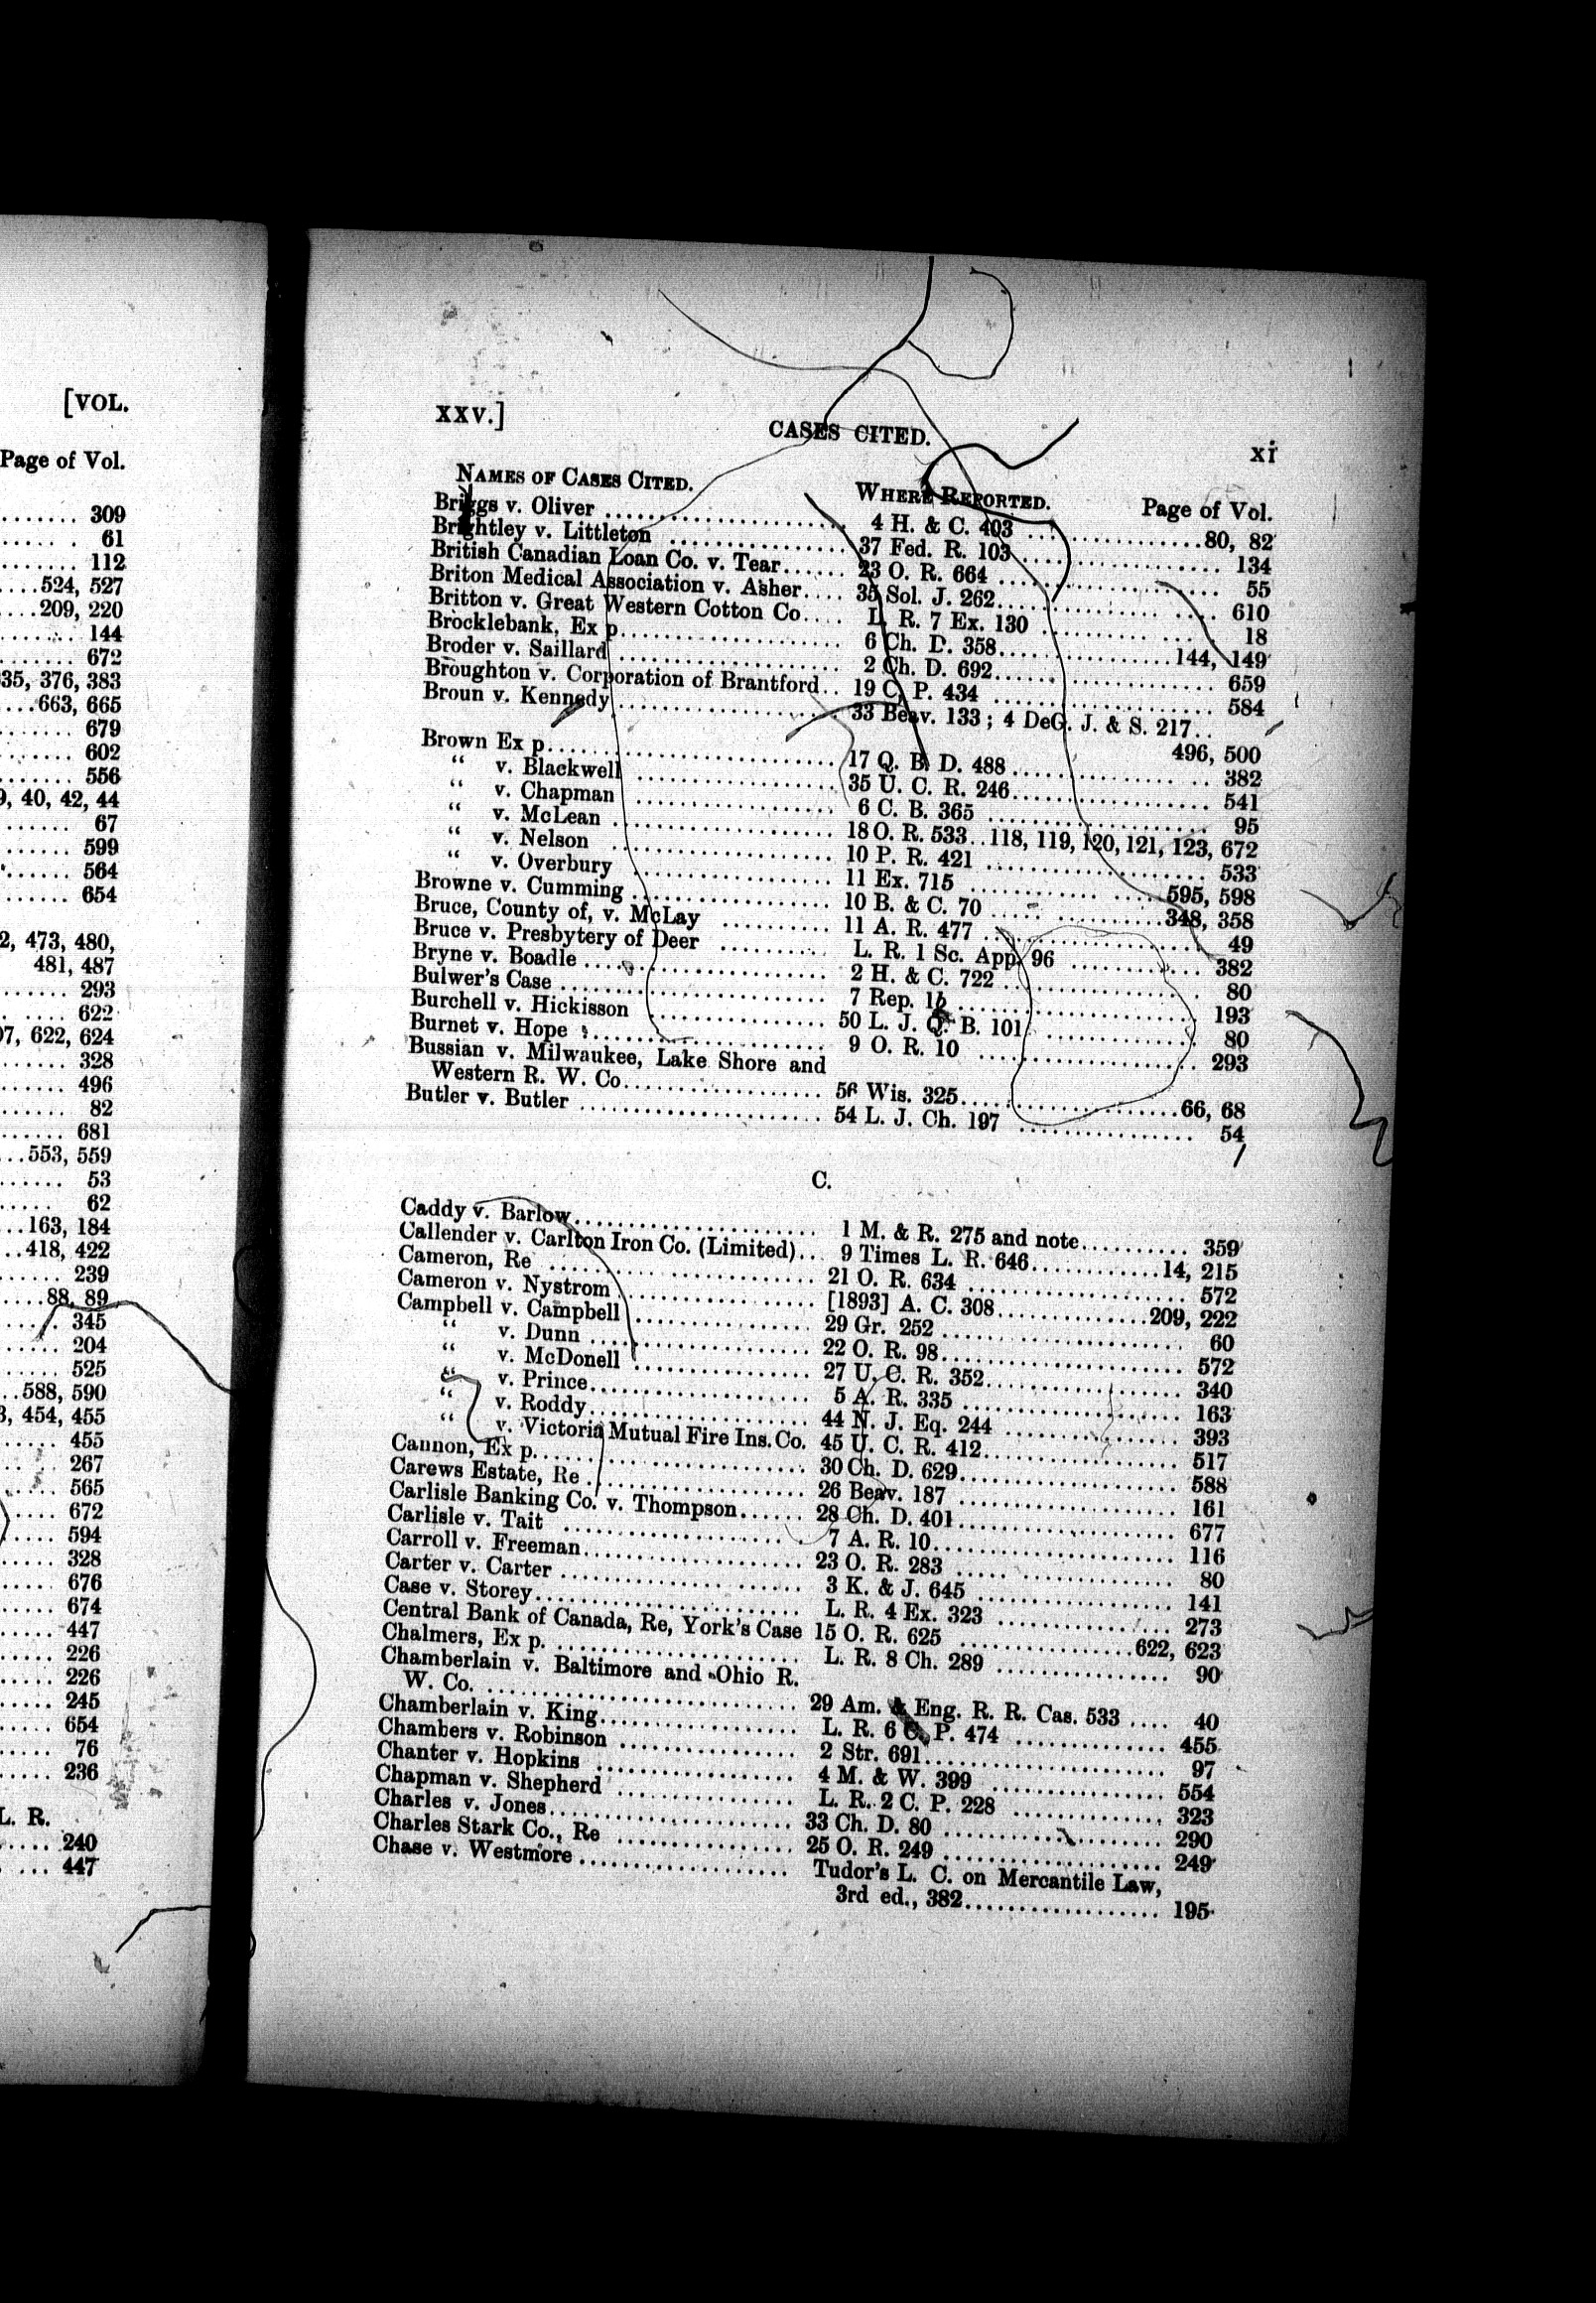 [VOL.
Page of Vol.
....... 309
....... 61
....... 112
....524, 527
...209, 220
....... 144
....... 672
35, 376, 383
...663, 665
....... 679
....... 602
....... 556
9, 40, 42, 44
....... 67
....... 599
....... 564
....... 654
2, 473, 480,
481, 487
....... 293
....... 622
07, 622, 624
....... 328
....... 496
....... 82
....... 681
...553, 559
....... 53
....... 62
...163, 184
...418, 422
....... 239
....88, 89
....... 345
....... 204
....... 525
...588, 590
3, 454, 455
....... 455
....... 267
....... 565
....... 672
....... 594
....... 328
....... 676
....... 674
....... 447
....... 226
....... 226
....... 245
....... 654
....... 76
....... 236
L. R.
..... 240
.... 447
XXV.] CASES CITED. xi
NAMES OF CASES CITED. WHERE REPORTED. Page of Vol.
Briggs v. Oliver .................... 4 H. & C. 403 ................80, 82
Brightley v. Littleton ................ 37 Fed. R. 103 ................ 134
British Canadian Loan Co. v. Tear...... 23 O. R. 664 ................ 55
Briton Medical Association v. Asher.... 35 Sol. J. 262................ 610
Britton v. Great Western Cotton Co.... L. R. 7 Ex. 130 ............ 18
Brocklebank, Ex p.................... 6 Ch. D. 358................144, 149
Broder v. Saillard .................... 2 Ch. D. 692................ 659
Broughton v. Corporation of Brantford.. 19 C. P. 434 ................ 584
Broun v. Kennedy.................... 33 Beav. 133 ; 4 DeG. J. & S. 217..
496, 500
Brown Ex p........................ 17 Q. B. D. 488................ 382
“ v. Blackwell .................... 35 U. C. R. 246................ 541
“ v. Chapman .................... 6 C. B. 365 ................ 95
“ v. McLean .................... 18 O. R. 533..118, 119, 120, 121, 123, 672
“ v. Nelson .................... 10 P. R. 421 ................ 533
“ v. Overbury .................... 11 Ex. 715 ................595, 598
Browne v. Cumming .................... 10 B. & C. 70 ................348, 358
Bruce, County of, v. McLay .......... 11 A. R. 477 ................ 49
Bruce v. Presbytery of Deer .......... L. R. 1 Sc. App. 96 ............ 382
Bryne v. Boadle .................... 2 H. & C. 722 ................ 80
Bulwer's Case .................... 7 Rep. 1b ................ 193
Burchell v. Hickisson ................ 50 L. J. Q. B. 101 ............ 80
Burnet v. Hope .................... 9 O. R. 10 ................ 293
Bussian v. Milwaukee, Lake Shore and
Western R. W. Co.................... 56 Wis. 325................66, 68
Butler v. Butler .................... 54 L. J. Ch. 197 ................ 54
C.
Caddy v. Barlow.................... 1 M. & R. 275 and note.......... 359
Callender v. Carlton Iron Co. (Limited)... 9 Times L. R. 646............14, 215
Cameron, Re .................... 21 O. R. 634 ................ 572
Cameron v. Nystrom ................ [1893] A. C. 308..............209, 222
Campbell v. Campbell ................ 29 Gr. 252 ................ 60
“ v. Dunn .................... 22 O. R. 98.................... 572
“ v. McDonell ................ 27 U. C. R. 352................ 340
“ v. Prince.................... 5 A. R. 335 ................ 163
“ v. Roddy.................... 44 N. J. Eq. 244 ................ 393
“ v. Victoria Mutual Fire Ins. Co. 45 U. C. R. 412................ 517
Cannon, Ex p.................... 30 Ch. D. 629................ 588
Carews Estate, Re .................... 26 Beav. 187 ................ 161
Carlisle Banking Co. v. Thompson...... 28 Ch. D. 401................ 677
Carlisle v. Tait .................... 7 A. R. 10.................... 116
Carroll v. Freeman.................... 23 O. R. 283 ................ 80
Carter v. Carter .................... 3 K. & J. 645 ................ 141
Case v. Storey.................... L. R. 4 Ex. 323 ................ 273
Central Bank of Canada, Re, York's Case 15 O. R. 625 ................622, 623
Chalmers, Ex p. .................... L. R. 8 Ch. 289 ................ 90
Chamberlain v. Baltimore and Ohio R.
W. Co. .................... 29 Am. & Eng. R. R. Cas. 533 .... 40
Chamberlain v. King.................... L. R. 6 C. P. 474 ............ 455
Chambers v. Robinson ................ 2 Str. 691.................... 97
Chanter v. Hopkins ................ 4 M. & W. 399 ................ 554
Chapman v. Shepherd ................ L. R. 2 C. P. 228 ............ 323
Charles v. Jones.................... 33 Ch. D. 80 ................ 290
Charles Stark Co., Re ................ 25 O. R. 249 ................ 249
Chase v. Westmore .................... Tudor's L. C. on Mercantile Law,
3rd ed., 382.................. 195